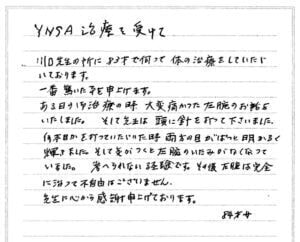 YNSA治療を受けて
川口先生の所に83才で伺って体の治療をしていただ
いております。
一番驚いた事を申上げます。
ある日の治療の時 大変痛かった左腕のお話を
いたしました。そして先生は頭に針を打って下さいました。
何本目かを打っていただいた時 両方の目がぱっと明かるく
輝きました。そして気がつくと左腕のいたみがなくなって
いました。考へられない経験です。その後左腕は完全
に治って不自由はございません。
先生に心から感謝申上げております。
才女